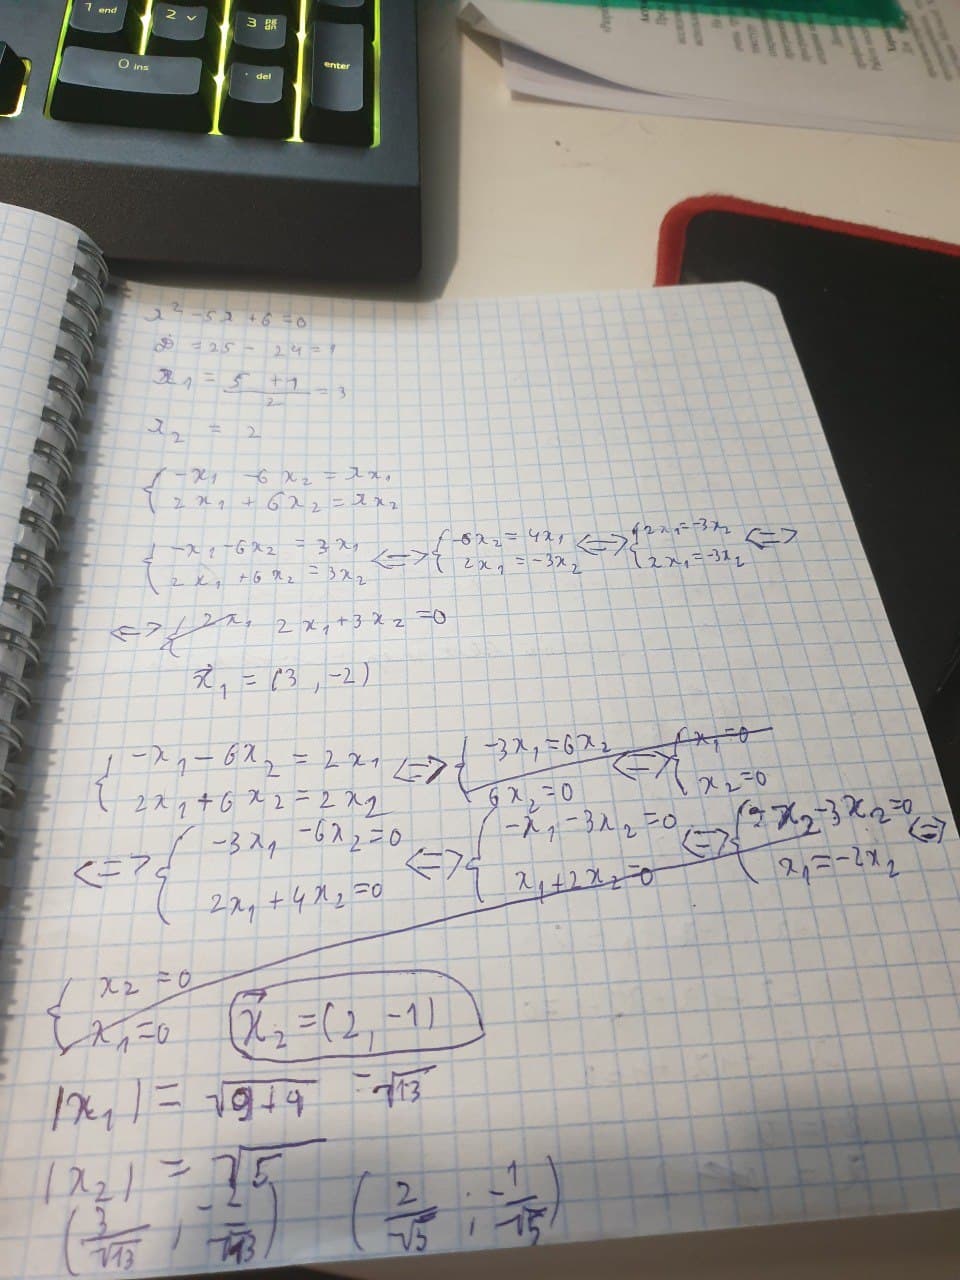 1 end
2
3 pg dn
0 ins
. del
enter
λ² - 5λ + 6 = 0
D = 25 - 24 = 1
λ₁ = (5 + 1)/2 = 3
λ₂ = 2
{ -x₁ - 6x₂ = λx₁
2x₁ + 6x₂ = λx₂
{ -x₁ - 6x₂ = 3x₁ <=> { -6x₂ = 4x₁ <=> { 2x₁ = -3x₂ <=>
2x₁ + 6x₂ = 3x₂ 2x₁ = -3x₂ 2x₁ = -3x₂
<=> { 2x₁ 2x₁ + 3x₂ = 0
x⃗₁ = (3, -2)
{ -x₁ - 6x₂ = 2x₁ <=> { -3x₁ = 6x₂ <=> { x₁ = 0
2x₁ + 6x₂ = 2x₂ 6x₂ = 0 x₂ = 0
<=> { -3x₁ - 6x₂ = 0 <=> { -x₁ - 3x₂ = 0 <=> { x₂ - 3x₂ = 0 <=>
2x₁ + 4x₂ = 0 x₁ + 2x₂ = 0 x₁ = -2x₂
{ x₂ = 0
x₁ = 0 x⃗₂ = (2, -1)
|x₁| = √(9+4) = √13
|x₂| = √5
(3/√13 ; -2/√13) (2/√5 ; -1/√5)